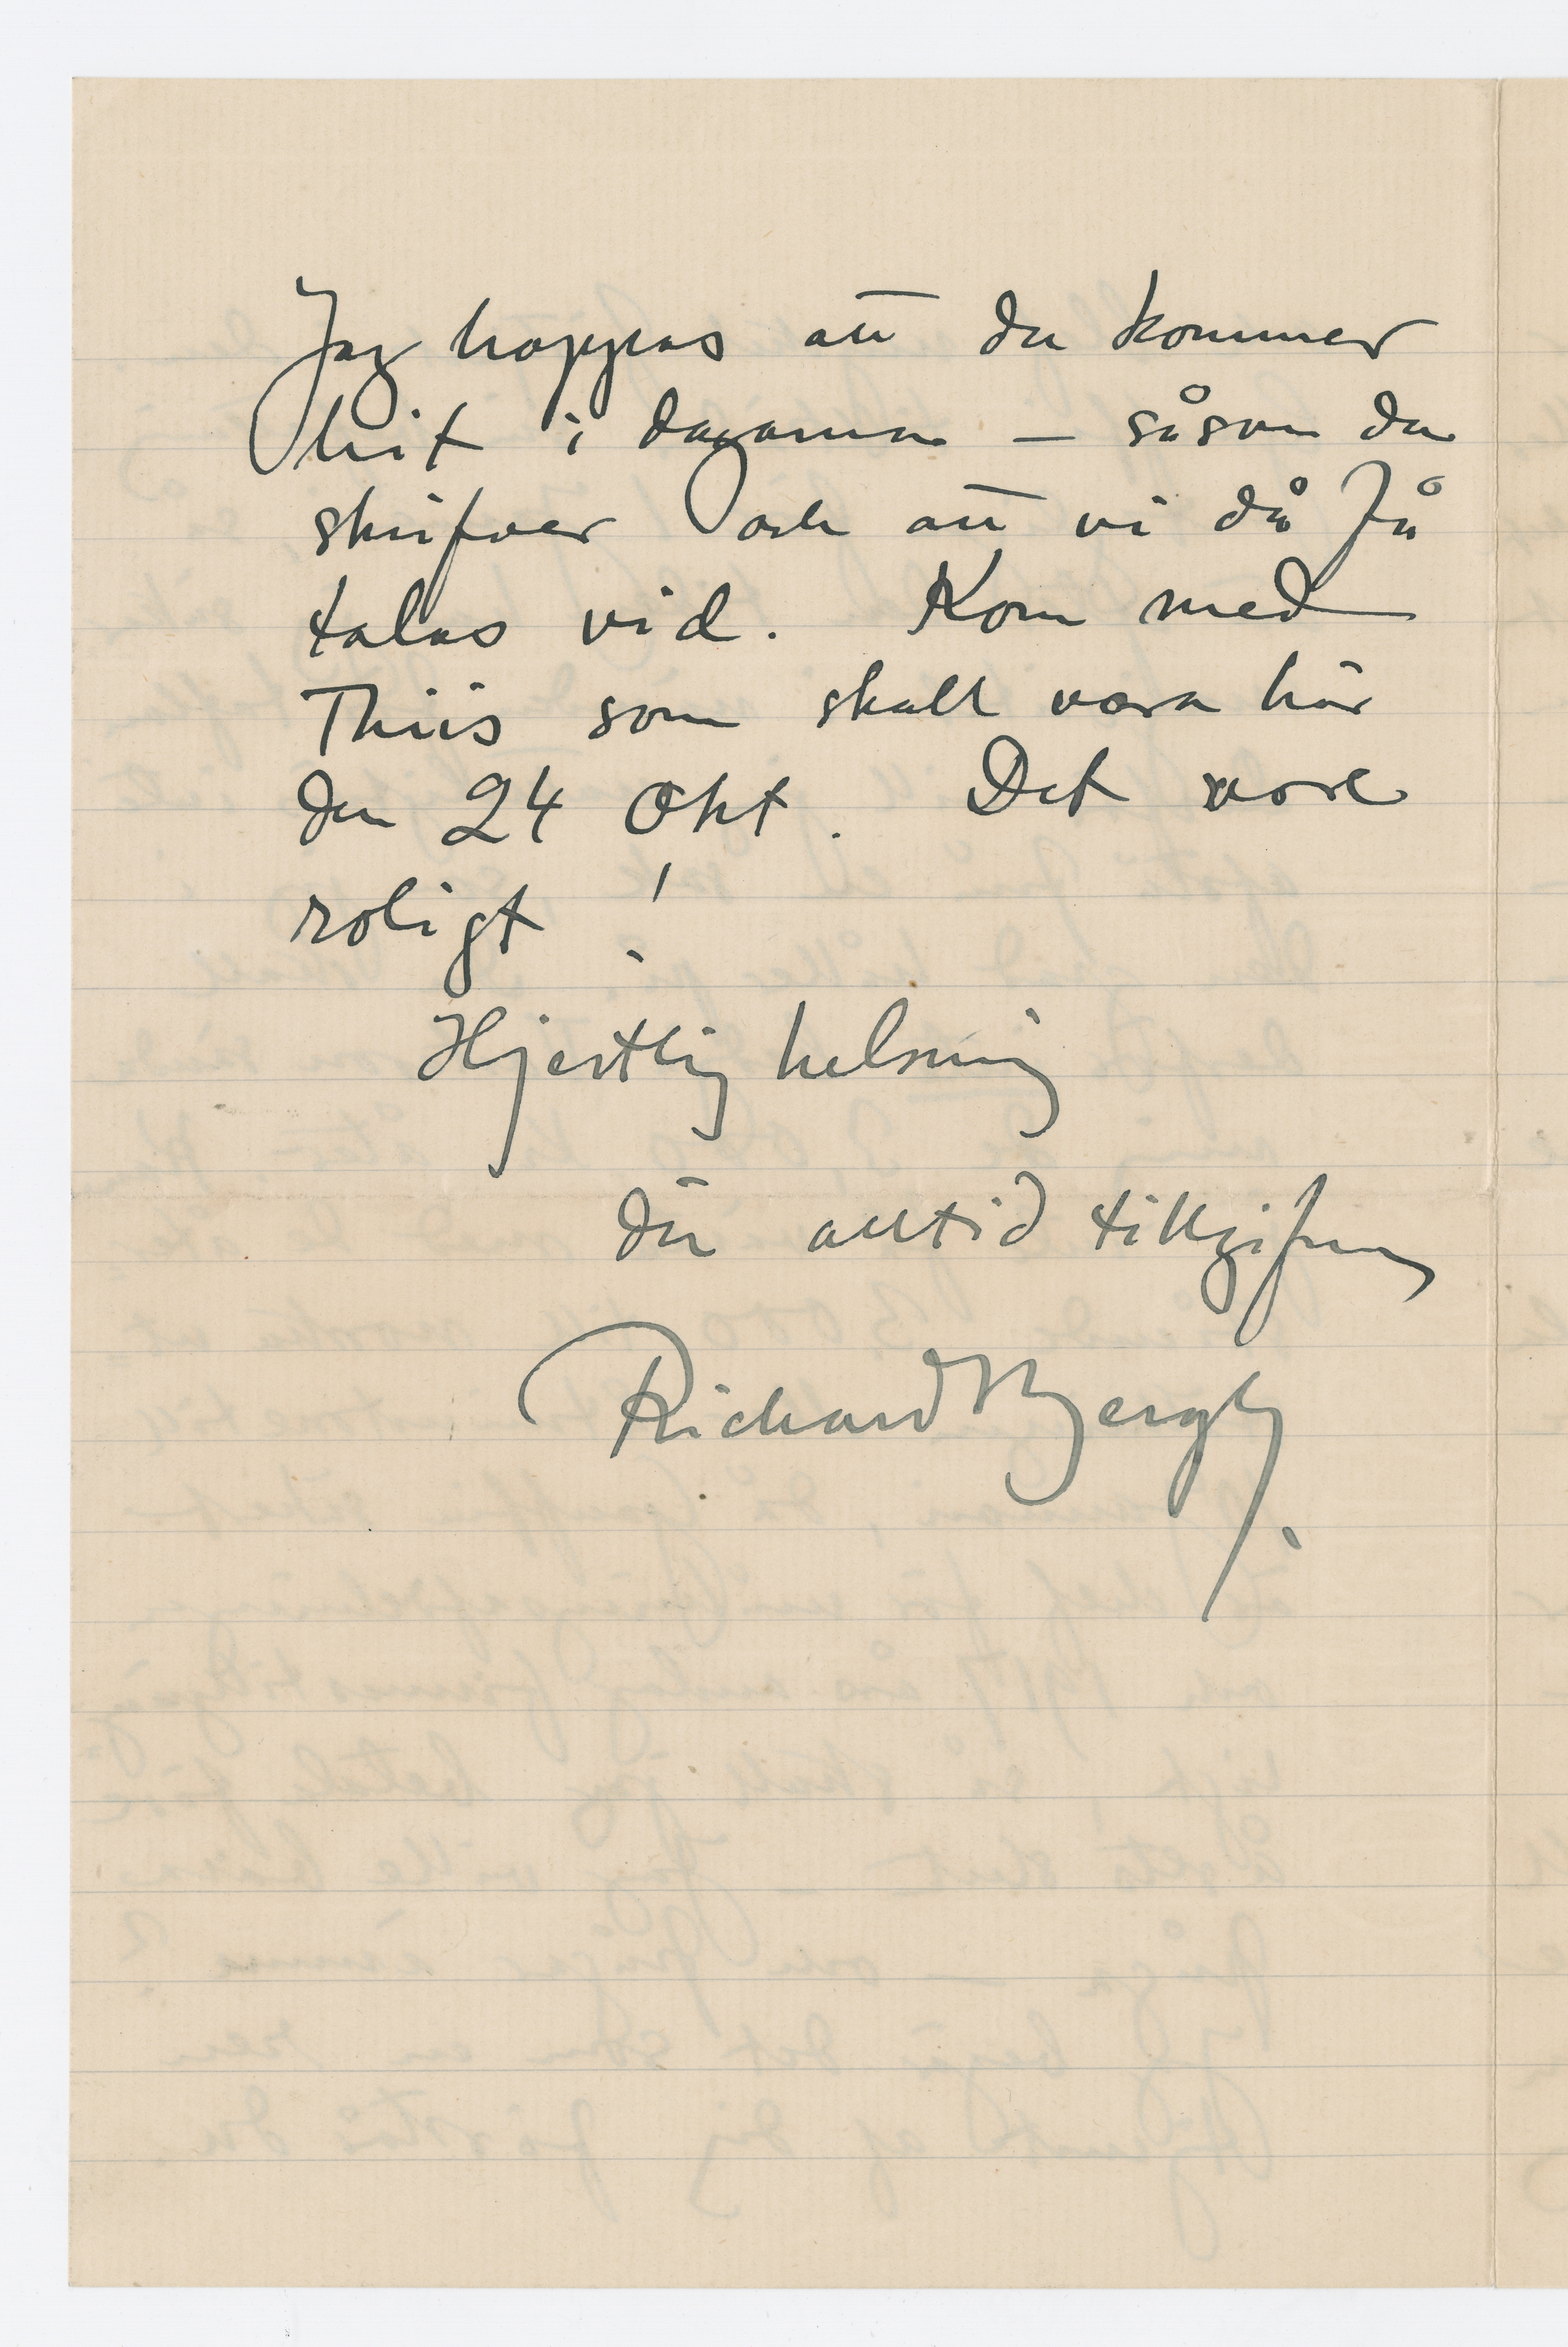 Jag hoppas att du kommer
hit i dagarna – såsom du
skrifver och att vi då få
talas vid. Kom med
Thiis som skall vara här
den 24 Okt. Det vore
roligt!
Hjertlig helsning
din alltid tillgifne
Richard Bergh.